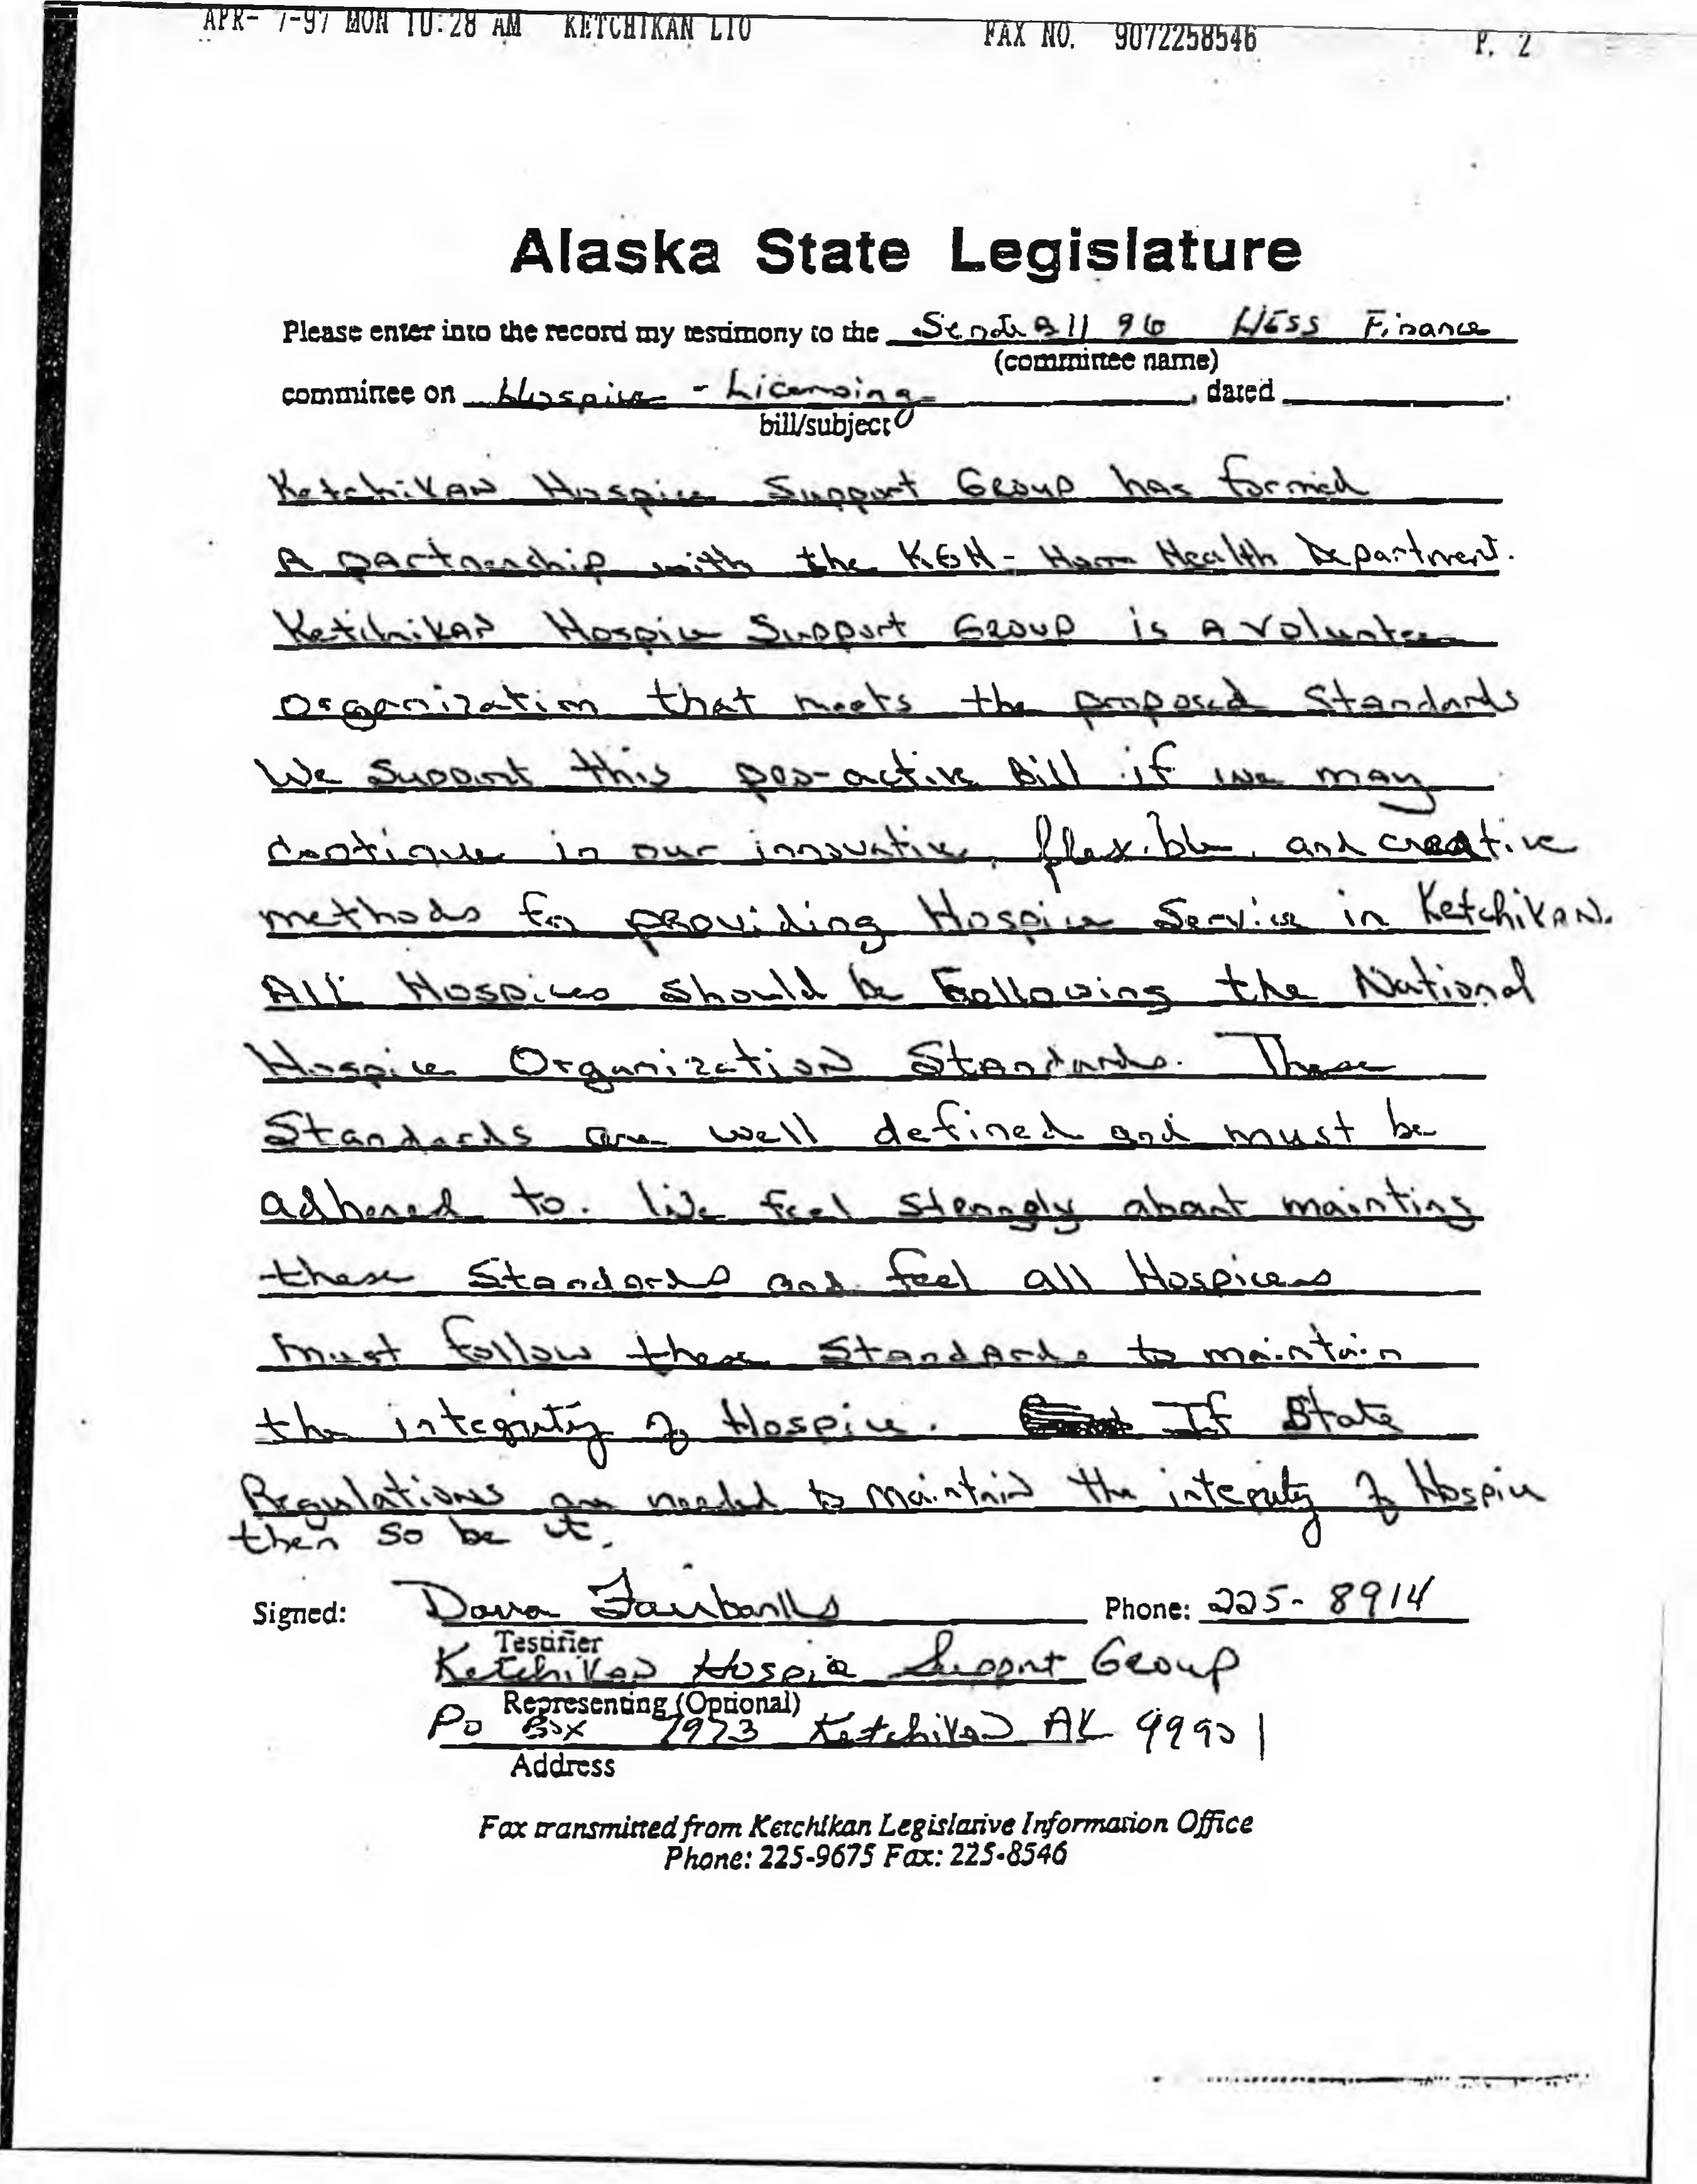 APR- 7-97 MON 10:28 AM KETCHIKAN LIO FAX NO. 9072258546 P. 2
Alaska State Legislature
Please enter into the record my testimony to the Senate Bill 96 HESS Finance
(committee name)
committee on Hospice - Licensing , dated .
bill/subject
Ketchikan Hospice Support Group has formed
A partnership with the KGH - Home Health Department.
Ketchikan Hospice Support Group is A volunteer
organization that meets the proposed standards
We Support this pro-active Bill if we may
continue in our innovative, flexible, and creative
methods for providing Hospice Service in Ketchikan.
All Hospices should be Following the National
Hospice Organization Standards. These
Standards are well defined and must be
adhered to. We feel strongly about mainting
these Standards and feel all Hospices
must follow these Standards to maintain
the integrity of Hospice. If State
Regulations are needed to maintain the integrity of Hospice
then so be it.
Signed: Fairbanks Phone: 225-8914
Testifier
Ketchikan Hospice Support Group
Representing (Optional)
PO Box 7973 Ketchikan AK 99901
Address
Fax transmitted from Ketchikan Legislative Information Office
Phone: 225-9675 Fax: 225-8546